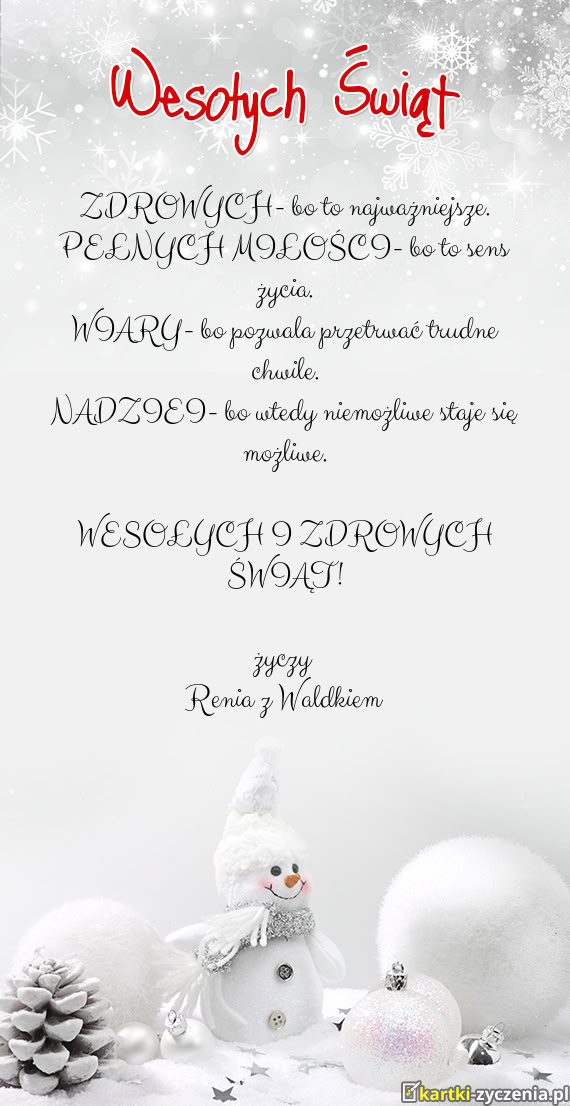 Wesołych Świąt
ZDROWYCH - bo to najważniejsze.
PEŁNYCH MIŁOŚCI - bo to sens
życia.
WIARY - bo pozwala przetrwać trudne
chwile.
NADZIEI - bo wtedy niemożliwe staje się
możliwe.
WESOŁYCH I ZDROWYCH
ŚWIĄT!
życzy
Renia z Waldkiem
kartki-zyczenia.pl